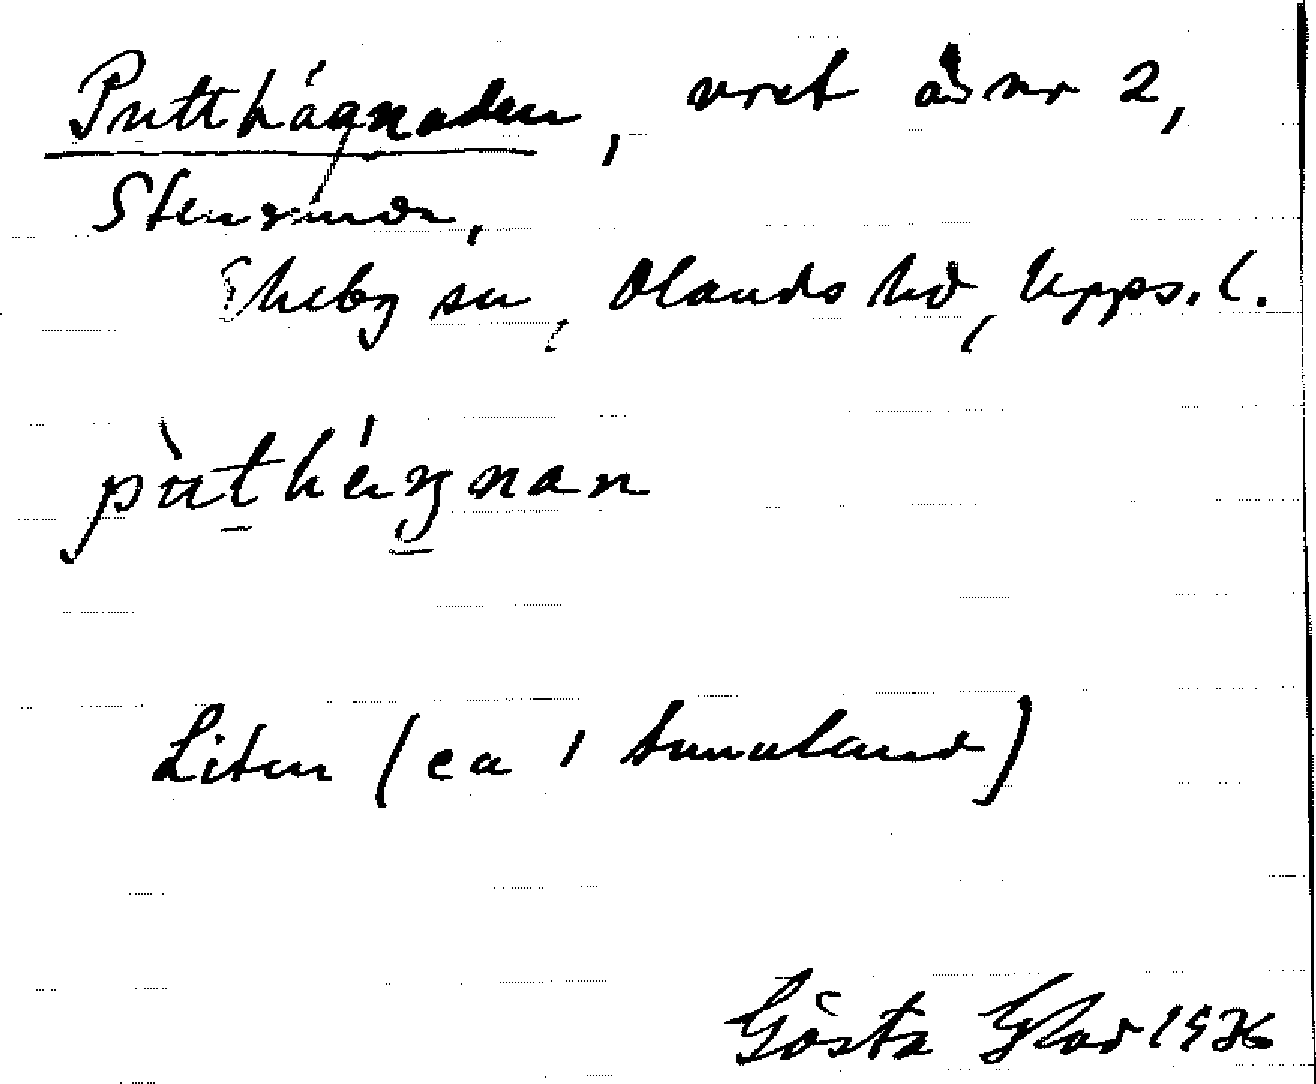 Putthágnaden, vret å nr 2,
Stensunda,
Ekeby sn, Olands hd, Upps. l.
pùthágnan
Liten (ca 1 tunnland)
Gösta 1936